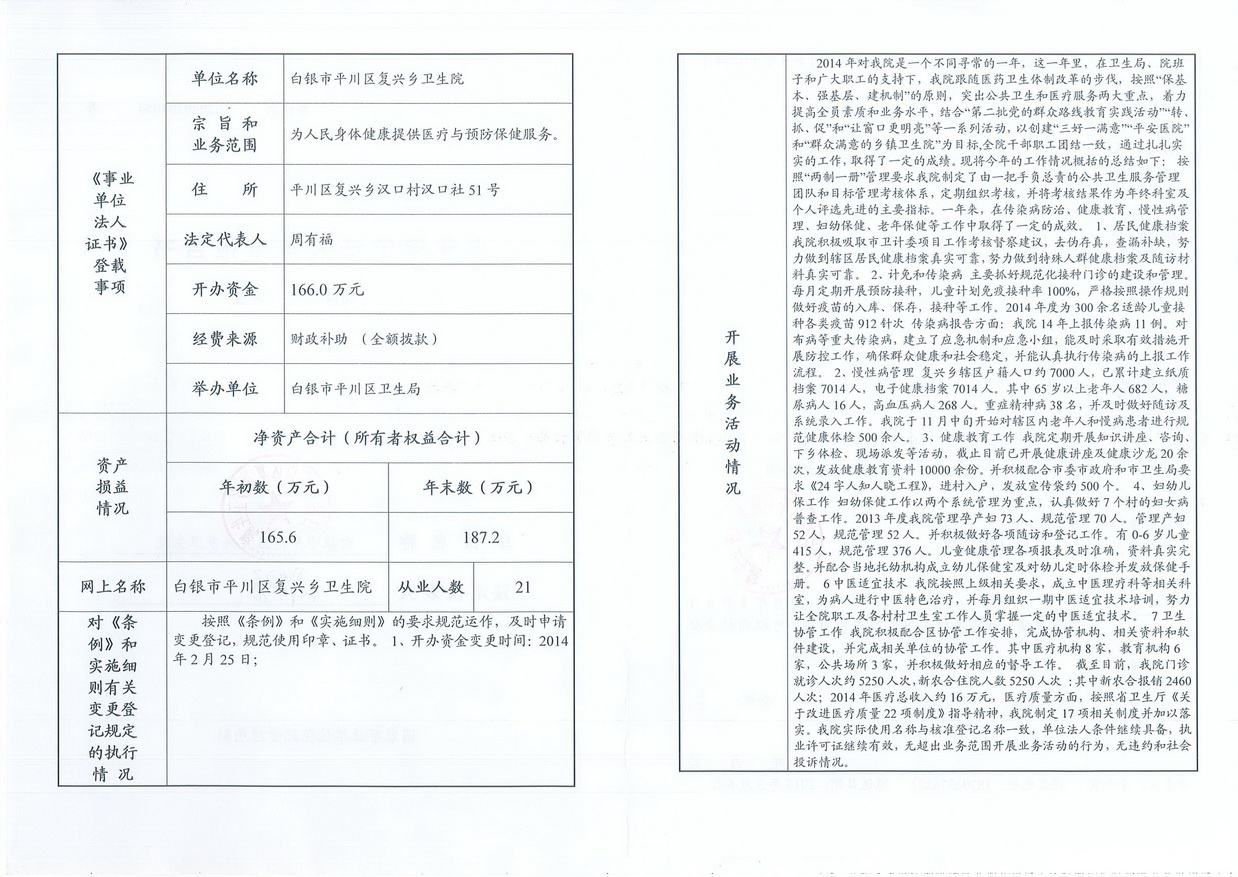 《事业
单位
法人
证书》
登载
事项
单位名称
白银市平川区复兴乡卫生院
宗 旨 和
业务范围
为人民身体健康提供医疗与预防保健服务。
住 所
平川区复兴乡汉口村汉口社 51 号
法定代表人
周有福
开办资金
166.0 万元
经费来源
财政补助 （全额拨款）
举办单位
白银市平川区卫生局
资产
损益
情况
净资产合计（所有者权益合计）
年初数（万元）
年末数（万元）
165.6
187.2
网上名称
白银市平川区复兴乡卫生院
从业人数
21
对《条
例》和
实施细
则有关
变更登
记规定
的执行
情 况
按照《条例》和《实施细则》的要求规范运作，及时申请
变更登记，规范使用印章、证书。 1、开办资金变更时间：2014
年 2 月 25 日；
开
展
业
务
活
动
情
况
2014 年对我院是一个不同寻常的一年，这一年里，在卫生局、院班
子和广大职工的支持下，我院跟随医药卫生体制改革的步伐，按照“保基
本、强基层、建机制”的原则，突出公共卫生和医疗服务两大重点，着力
提高全员素质和业务水平，结合“第二批党的群众路线教育实践活动”“转、
抓、促”和“让窗口更明亮”等一系列活动，以创建“三好一满意”“平安医院”
和“群众满意的乡镇卫生院”为目标,全院干部职工团结一致，通过扎扎实
实的工作，取得了一定的成绩。现将今年的工作情况概括的总结如下： 按
照“两制一册”管理要求我院制定了由一把手负总责的公共卫生服务管理
团队和目标管理考核体系，定期组织考核，并将考核结果作为年终科室及
个人评选先进的主要指标。一年来，在传染病防治、健康教育、慢性病管
理、妇幼保健、老年保健等工作中取得了一定的成效。 1、居民健康档案
我院积极吸取市卫计委项目工作考核督察建议，去伪存真，查漏补缺，努
力做到辖区居民健康档案真实可靠，努力做到特殊人群健康档案及随访材
料真实可靠。 2、计免和传染病 主要抓好规范化接种门诊的建设和管理。
每月定期开展预防接种，儿童计划免疫接种率 100%，严格按照操作规则
做好疫苗的入库、保存，接种等工作。2014 年度为 300 余名适龄儿童接
种各类疫苗 912 针次 传染病报告方面：我院 14 年上报传染病 11 例。对
布病等重大传染病，建立了应急机制和应急小组，能及时采取有效措施开
展防控工作，确保群众健康和社会稳定，并能认真执行传染病的上报工作
流程。 2、慢性病管理 复兴乡辖区户籍人口约 7000 人，已累计建立纸质
档案 7014 人，电子健康档案 7014 人。其中 65 岁以上老年人 682 人，糖
尿病人 16 人，高血压病人 268 人。重症精神病 38 名，并及时做好随访及
系统录入工作。我院于 11 月中旬开始对辖区内老年人和慢病患者进行规
范健康体检 500 余人。 3、健康教育工作 我院定期开展知识讲座、咨询、
下乡体检、现场派发等活动，截止目前已开展健康讲座及健康沙龙 20 余
次，发放健康教育资料 10000 余份。并积极配合市委市政府和市卫生局要
求《24 字人知人晓工程》，进村入户，发放宣传袋约 500 个。 4、妇幼儿
保工作 妇幼保健工作以两个系统管理为重点，认真做好 7 个村的妇女病
普查工作。2013 年度我院管理孕产妇 73 人、规范管理 70 人。管理产妇
52 人，规范管理 52 人。并积极做好各项随访和登记工作。有 0-6 岁儿童
415 人，规范管理 376 人。儿童健康管理各项报表及时准确，资料真实完
整。并配合当地托幼机构成立幼儿保健室及对幼儿定时体检并发放保健手
册。 6 中医适宜技术 我院按照上级相关要求，成立中医理疗科等相关科
室，为病人进行中医特色治疗，并每月组织一期中医适宜技术培训，努力
让全院职工及各村村卫生室工作人员掌握一定的中医适宜技术。 7 卫生
协管工作 我院积极配合区协管工作安排，完成协管机构、相关资料和软
件建设，并完成相关单位的协管工作。其中医疗机构 8 家，教育机构 6
家，公共场所 3 家，并积极做好相应的督导工作。 截至目前，我院门诊
就诊人次约 5250 人次，新农合住院人数 5250 人次 ；其中新农合报销 2460
人次；2014 年医疗总收入约 16 万元，医疗质量方面，按照省卫生厅《关
于改进医疗质量 22 项制度》指导精神，我院制定 17 项相关制度并加以落
实。我院实际使用名称与核准登记名称一致，单位法人条件继续具备，执
业许可证继续有效，无超出业务范围开展业务活动的行为，无违约和社会
投诉情况。